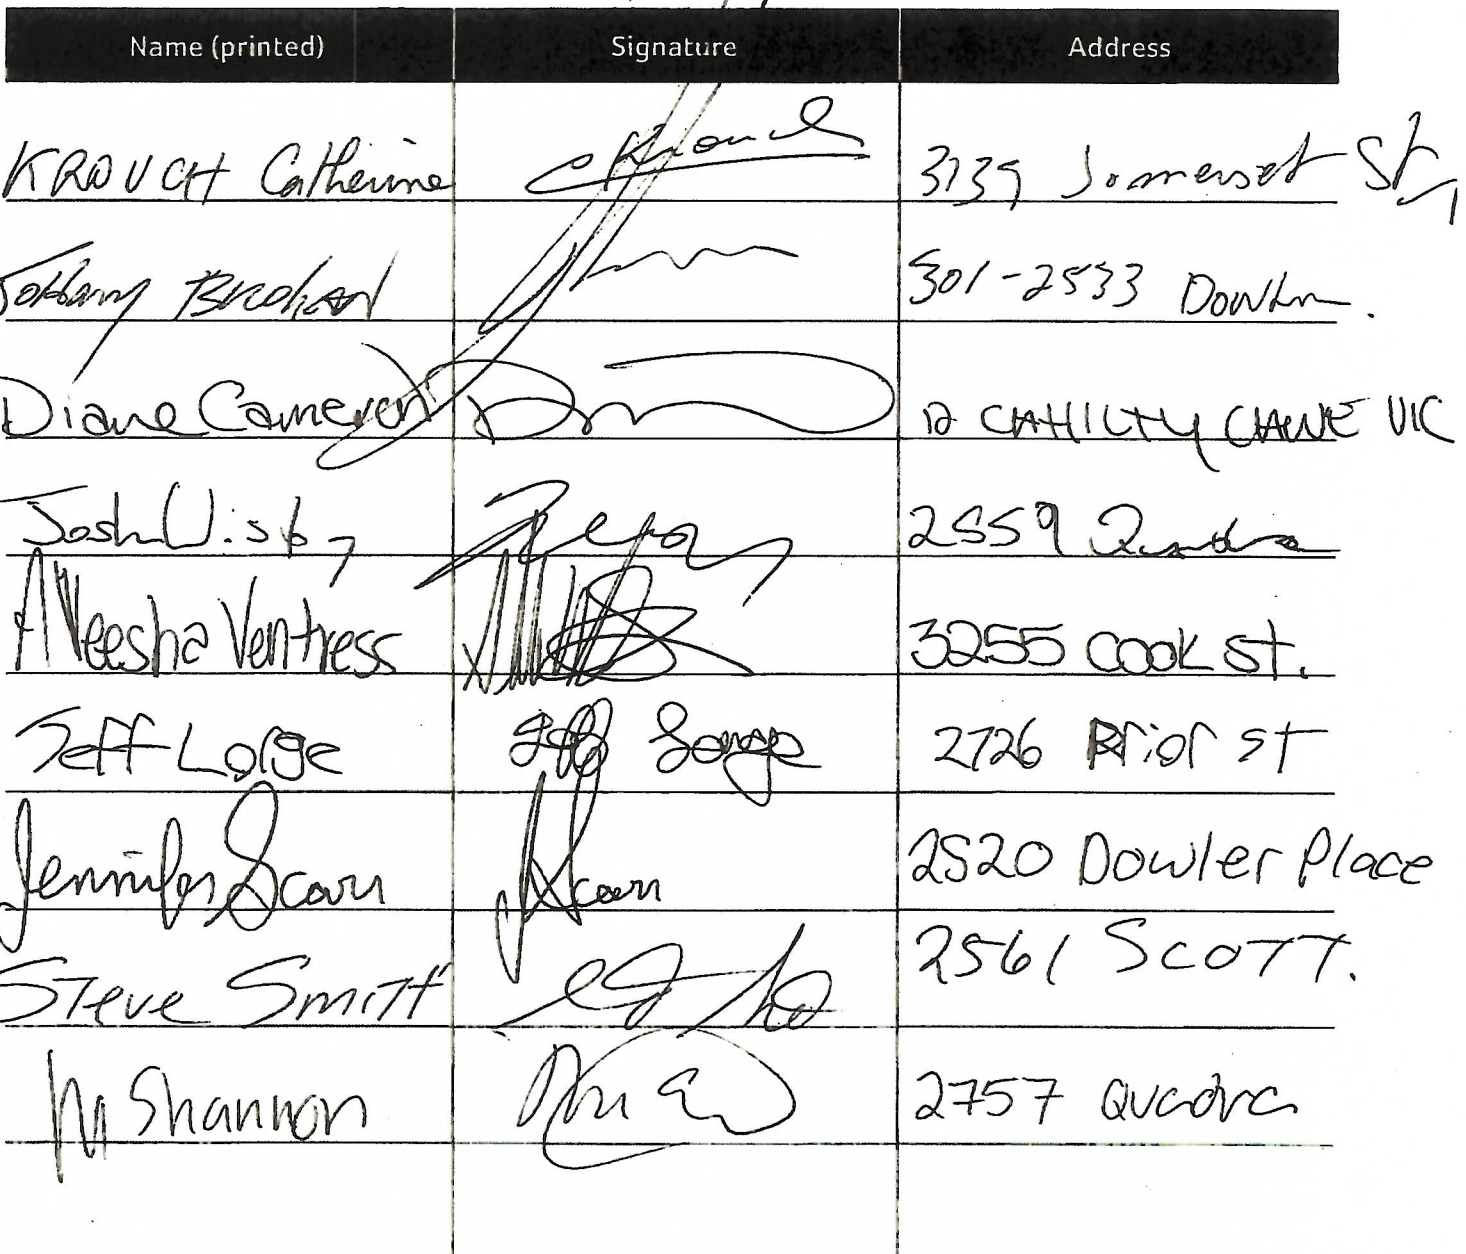 Name (printed) Signature Address
KROUCH Catherine CKrouch 3139 Somerset St,
Johnny 301-2533 Dowler.
Diane Cameron 12 CAHILTY VIC
Josh Wisby 2559 Quadra
Aleesha Ventress 3255 COOK St.
Jeff Lorge Jeff Lorge 2726 Prior St
Jennifer Scarr JScarr 2520 Dowler Place
Steve Smith 2561 SCOTT.
M Shannon 2757 Quadra